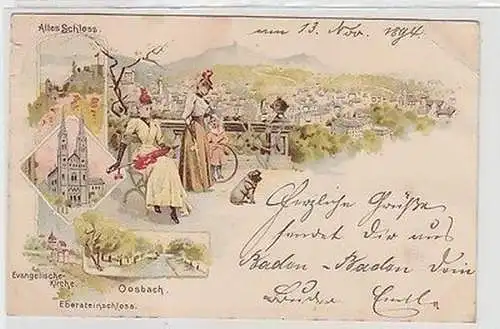 Altes Schloss.
am 13. Nov. 1894.
Herzliche Grüße
sendet Dir aus
Baden-Baden Dein
Bruder Emil.
Evangelische-
Kirche.
Oosbach.
Ebersteinschloss.